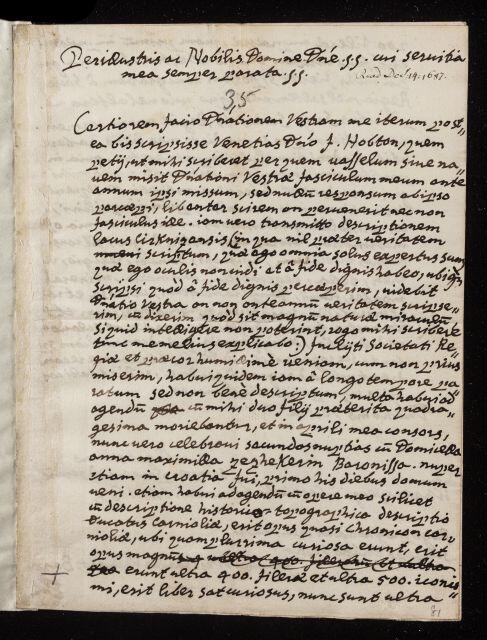 Perillustris ac Nobilis Domine Dńe. §§. cui servitia
mea semper parata. §§.
Read Dec. 14. 1687.
35
Certiorem facio Dnationem Vestram me iterum post
ea bis scripsisse Venetias Dńo J. Hobton, quem
petij, ut mihi scriberet per quem vassellum sive na
vem misit Dnationi Vestræ fasciculum meum ante
annum ipsi missum, sed nullum responsum ab ipso
percæpi, libenter scirem an pervenerit nec non
fasciculus ille. iam vero transmitto descriptionem
lacus Cirknigensis (in qua nil præter veritatem
scriptum, quæ ego omnia solus expertus sum
quæ ego oculis non vidi at â fide dignis habeo, ubi
scripsi quod â fide dignis perceperim, videbit
Dnatio Vestra an non ante annum veritatem scripse
rim, cum dixerim quod sit magnum naturæ miraculum
si quid intelligere non poterint, rogo mihi scribere
tunc melius explicabo:) Inclyti Societati Re
giæ et præcor humillimè veniam, cum non prius
miserim, habui quidem iam â longo tempore pa
ratum sed non bene descriptum, multa habui ad
agendum cum mihi duo filij præterita quadra
gesima moriebantur, et in aprili mea consors,
nunc vero celebravi secundas nuptias cum Domicella
anna maximilla Baronissa. nuper
etiam in croatia fui, primo his diebus domum
veni. etiam habui ad agendum cum opere meo scilicet
cum descriptione historico topographica descriptio
Ducatus Carnioliæ, erit opus quasi chronicon car
nioliæ, ubi quam plurima curiosa erunt, erit
opus magnum
erunt ultra 400. filera et ultra 500. iconis
mi, erit liber sat curiosus, nunc sunt ultra
81